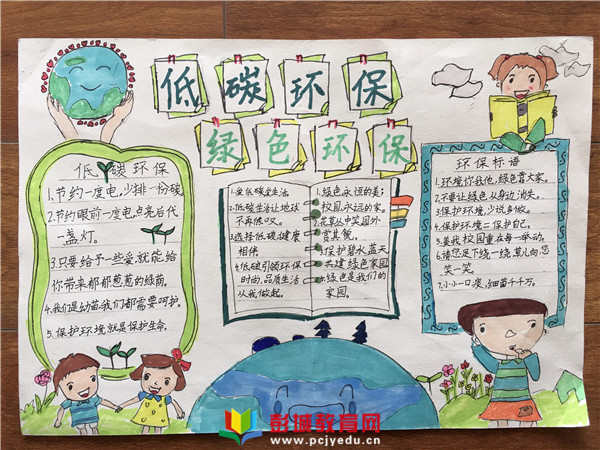 低碳环保
绿色环保
低碳环保
1.节约一度电,少排一份碳
2.节约眼前一度电,点亮后代
一盏灯.
3.只要给予一些爱,就能给
你带来郁郁葱葱的绿荫.
4.我们是幼苗,我们都需要呵护.
5.保护环境,就是保护生命.
低碳生活
2.低碳生活让地球
不再低叹.
3.选择低碳,健康
相伴
4.低碳引领环保
时尚,品质生活
从我做起.
1.绿色永恒的美;
校园永远的家.
2.花草丛中笑,园外
赏其貌.
3.保护碧水蓝天
共建绿色家园
4.绿色是我们的
家园.
环保标语
1.环境你我他,绿色靠大家.
2.不要让绿色从身边消失.
3.保护环境,少说多做.
4.保护环境=保护自己.
5.美我校园重在每一举动.
6.请您足下绕一绕,草儿向您
笑一笑.
7.小小一口痰,细菌千千万.
彭城教育网
www.pcjyedu.cn